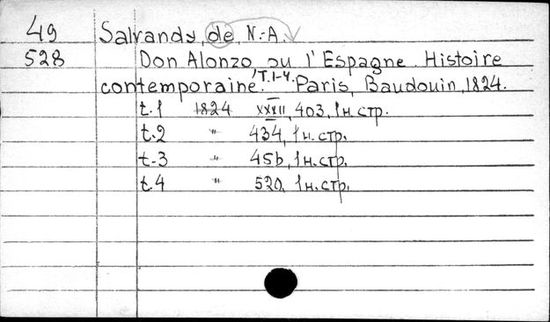 49 Salvandy, de N.-A.
528 Don Alonzo, ou l'Espagne. Histoire
contemporaine. T.1-4. Paris, Baudouin, 1824.
t.1 1824 XXXII, 403, 1н.стр.
t.2 " 434, 1н.стр.
t.3 " 456, 1н.стр.
t.4 " 520, 1н.стр.